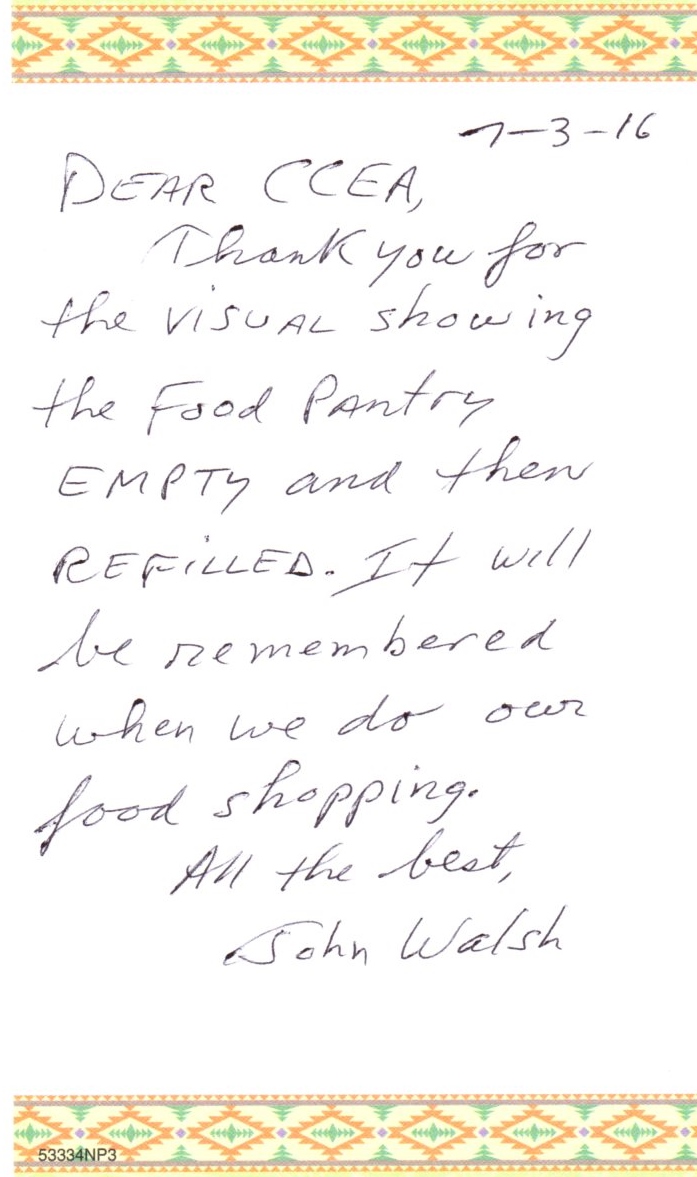 7-3-16
DEAR CCEA,
Thank you for
the VISUAL showing
the Food PAntry
EMPTy and then
REFiLLED. It will
be remembered
when we do our
food shopping.
All the best,
John Walsh
53334NP3